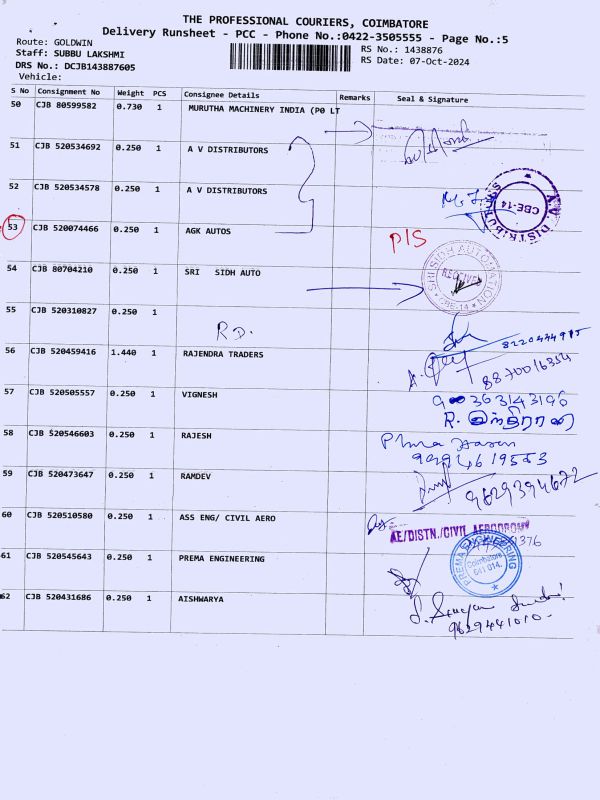 THE PROFESSIONAL COURIERS, COIMBATORE
Delivery Runsheet - PCC - Phone No.:0422-3505555 - Page No.:5
Route: GOLDWIN
Staff: SUBBU LAKSHMI
RS No.: 1438876
DRS No.: DCJB143887605
RS Date: 07-Oct-2024
Vehicle:
S No Consignment No Weight PCS Consignee Details Remarks Seal & Signature
50 CJB 80599582 0.730 1 MURUTHA MACHINERY INDIA (P0 LT
51 CJB 520534692 0.250 1 A V DISTRIBUTORS
52 CJB 520534578 0.250 1 A V DISTRIBUTORS
A.V. DISTRIBUTORS CBE-14
53 CJB 520074466 0.250 1 AGK AUTOS
P/S
54 CJB 80704210 0.250 1 SRI SIDH AUTO
SRI SIDH AUTOMATION RECEIVED CBE-14
55 CJB 520310827 0.250 1
RD.
56 CJB 520459416 1.440 1 RAJENDRA TRADERS
57 CJB 520505557 0.250 1 VIGNESH
58 CJB 520546603 0.250 1 RAJESH
59 CJB 520473647 0.250 1 RAMDEV
9629394672
60 CJB 520510580 0.250 1 ASS ENG/ CIVIL AERO
AE/DISTN./CIVIL AERODROM
61 CJB 520545643 0.250 1 PREMA ENGINEERING
PREMA ENGINEERING Coimbatore 641 014.
62 CJB 520431686 0.250 1 AISHWARYA
9629441010